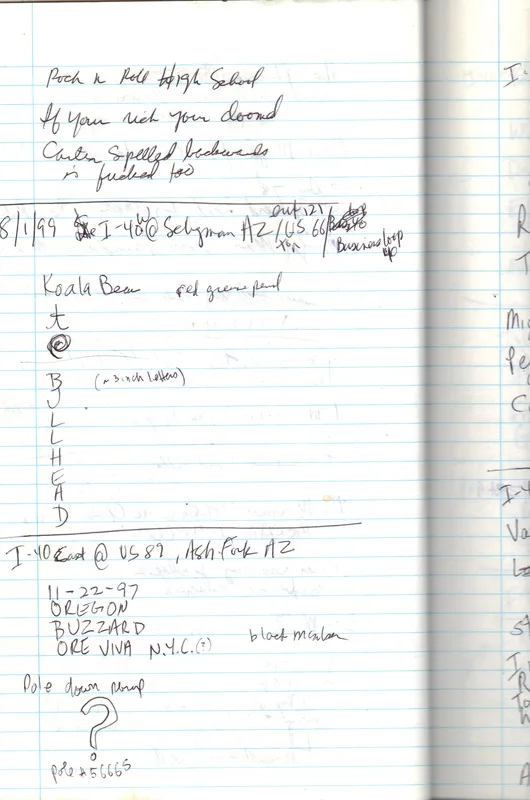 Rock n Roll High School
If your rich your doomd
Carter spelled backwards
is fucked too
8/1/99 I-40 W @ Seligman AZ / exit 121 / US 66 / Business loop 40
Koala Bear red grease pencil
t
@
B (~3 inch letters)
U
L
L
H
E
A
D
I-40 East @ US 89, Ash Fork AZ
11-22-97
OREGON
BUZZARD
ORE VIVA N.Y.C.(?) black marker
Pole down ramp
?
pole #56665
I-
R
T
Mi
Pe
C
I-4
Va
st
I
R
A